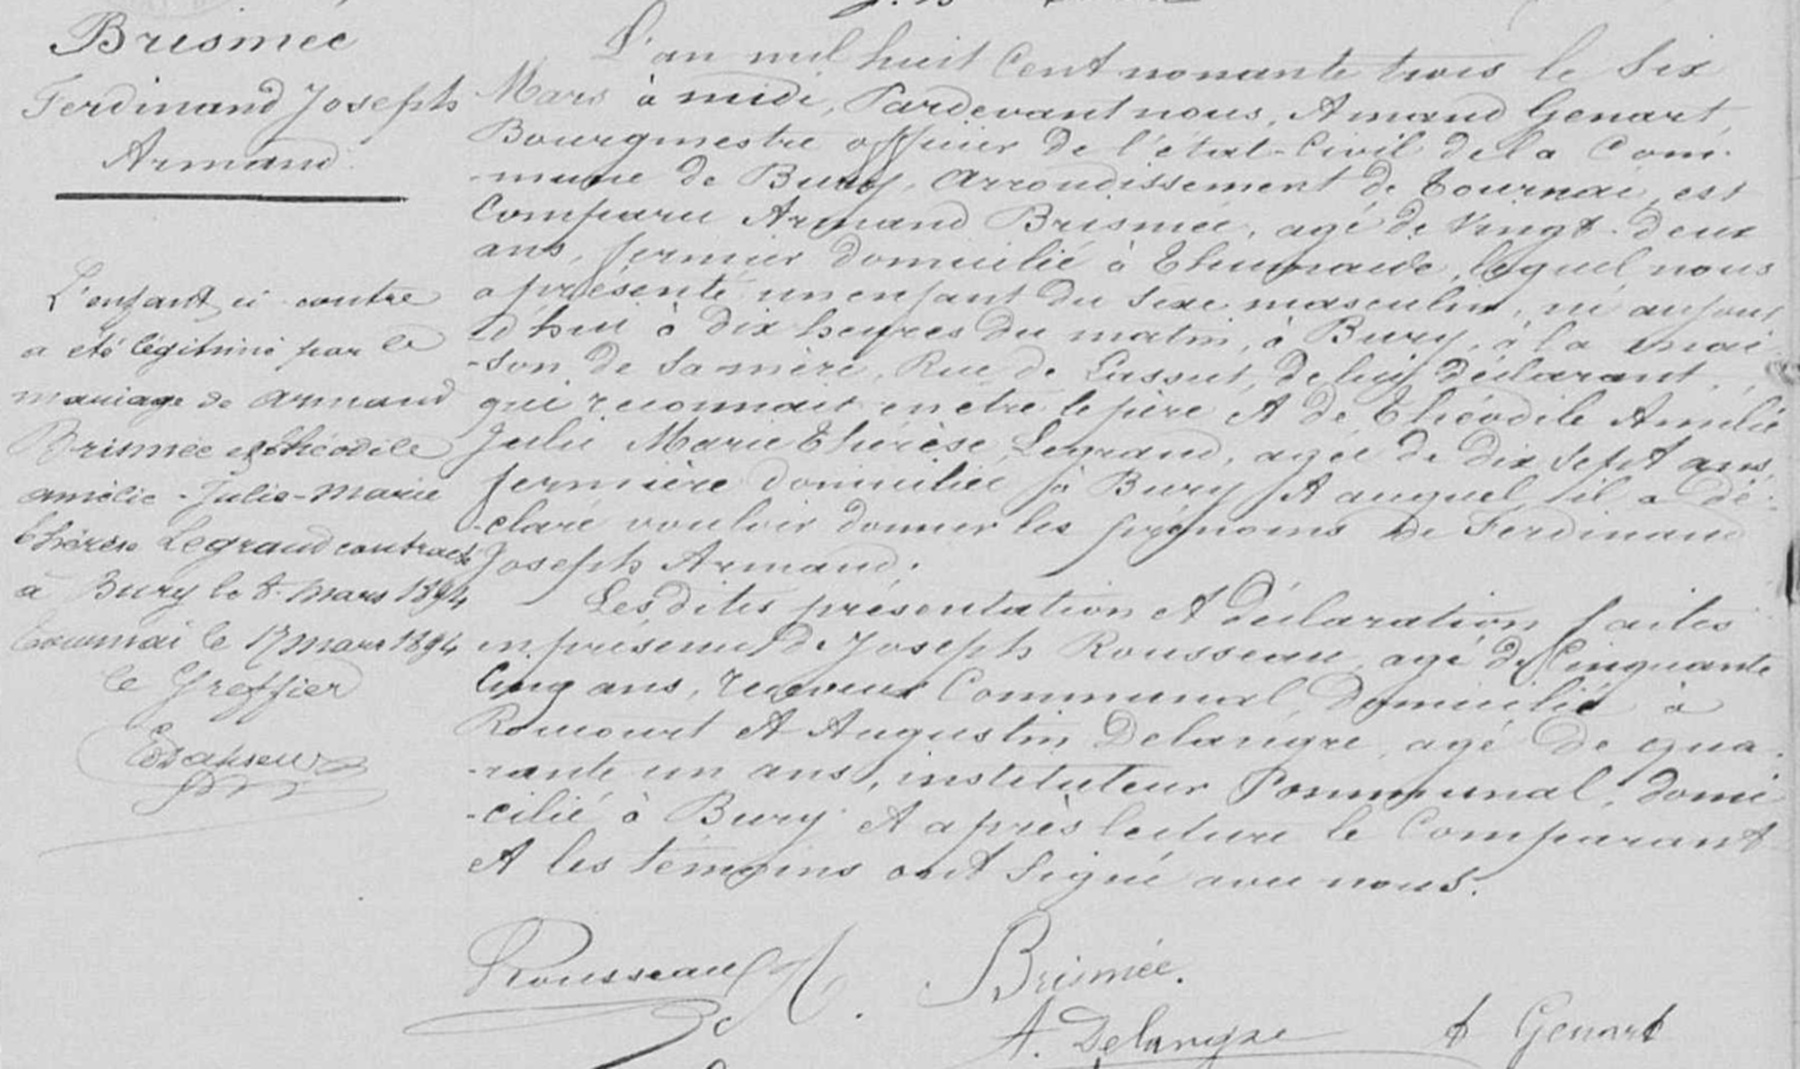 Brismée
Ferdinand Joseph
Armand
L'enfant ci contre
a été légitimé par le
mariage de Armand
Brismée et Théodile
Amélie-Julie-Marie
Thérèse Legrand contracté
à Bury le 8 mars 1894
Tournai le 17 mars 1894
le Greffier
L'an mil huit Cent nonante trois le Six
Mars à midi, Pardevant nous, Amand Genart,
Bourgmestre officier de l'état-Civil de la Com-
-mune de Bury, Arrondissement de Tournai, est
Comparu Armand Brismée, agé de Vingt-deux
ans, fermier domicilié à Thumaide, lequel nous
a présenté un enfant du Sexe masculin, né aujour
d'hui à dix heures du matin, à Bury, à la mai
-son de Sa mère, Rue de de lui déclarant,
qui reconnait en etre le père et de Théodile Amélie
Julie Marie Thérèse Legrand, agée de dix Sept ans,
fermière domiciliée à Bury et auquel il a dé-
-claré vouloir donner les prénoms de Ferdinand
Joseph Armand.
Les dites présentation et déclaration faites
en présence de Joseph Rousseau, agé de Cinquante
Cinq ans, receveur Communal, domicilié à
Roucourt et Augustin Delangre, agé de qua-
-rante un ans, instituteur Communal, domi
-cilié à Bury et après lecture le Comparant
et les témoins ont Signé avec nous.
Rousseau J
Brismée.
A. Delangre
A Genart